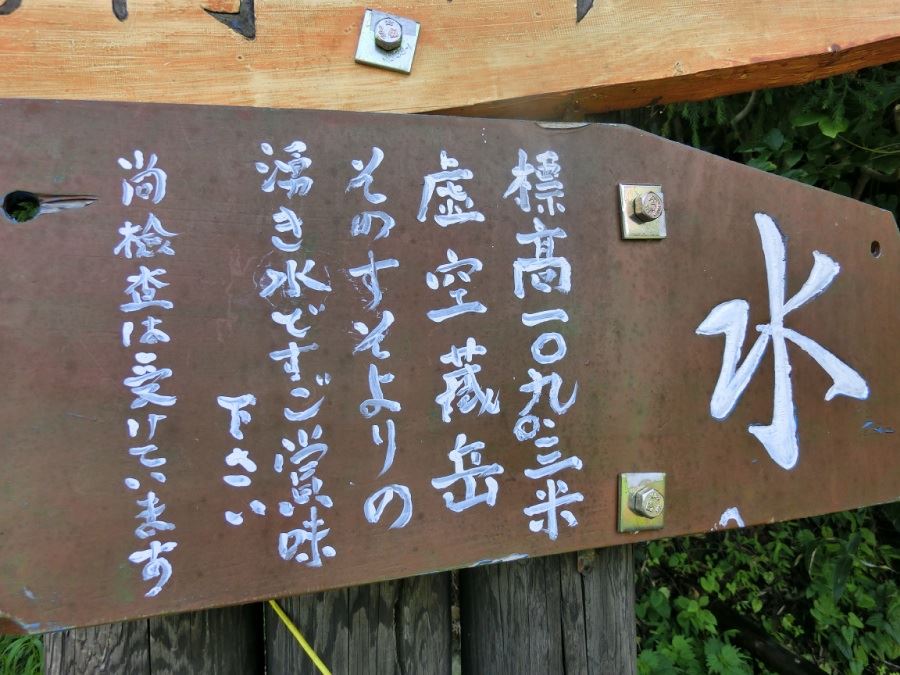 水
標高一〇九〇.三米
虚空蔵岳
そのすそよりの
湧き水ですご賞味
下さい
尚検査は受けています